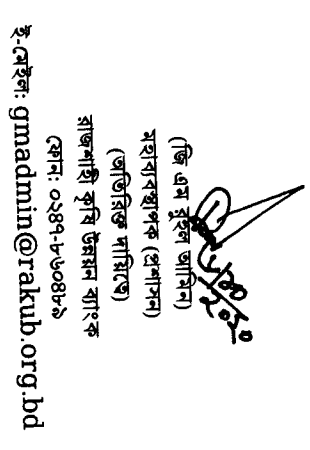 (জি এম রুহুল আমিন)
মহাব্যবস্থাপক (প্রশাসন)
(অতিরিক্ত দায়িত্বে)
রাজশাহী কৃষি উন্নয়ন ব্যাংক
ফোন: ০২৪৭-৮৬০৪৮৯
ই-মেইল: gmadmin@rakub.org.bd